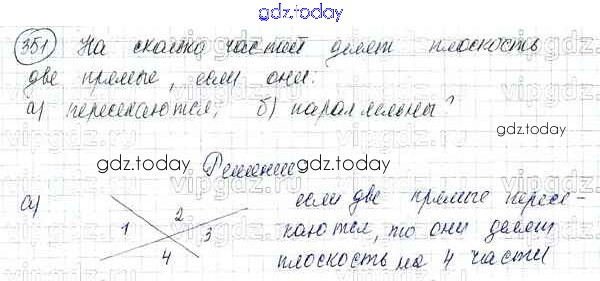 gdz.today
351 На сколько частей делят плоскость
две прямые, если они:
а) пересекаются; б) параллельны?
gdz.today gdz.today
Решение
а) 1 2 3 4
если две прямые пересе-
каются, то они делят
плоскость на 4 части
gdz.today